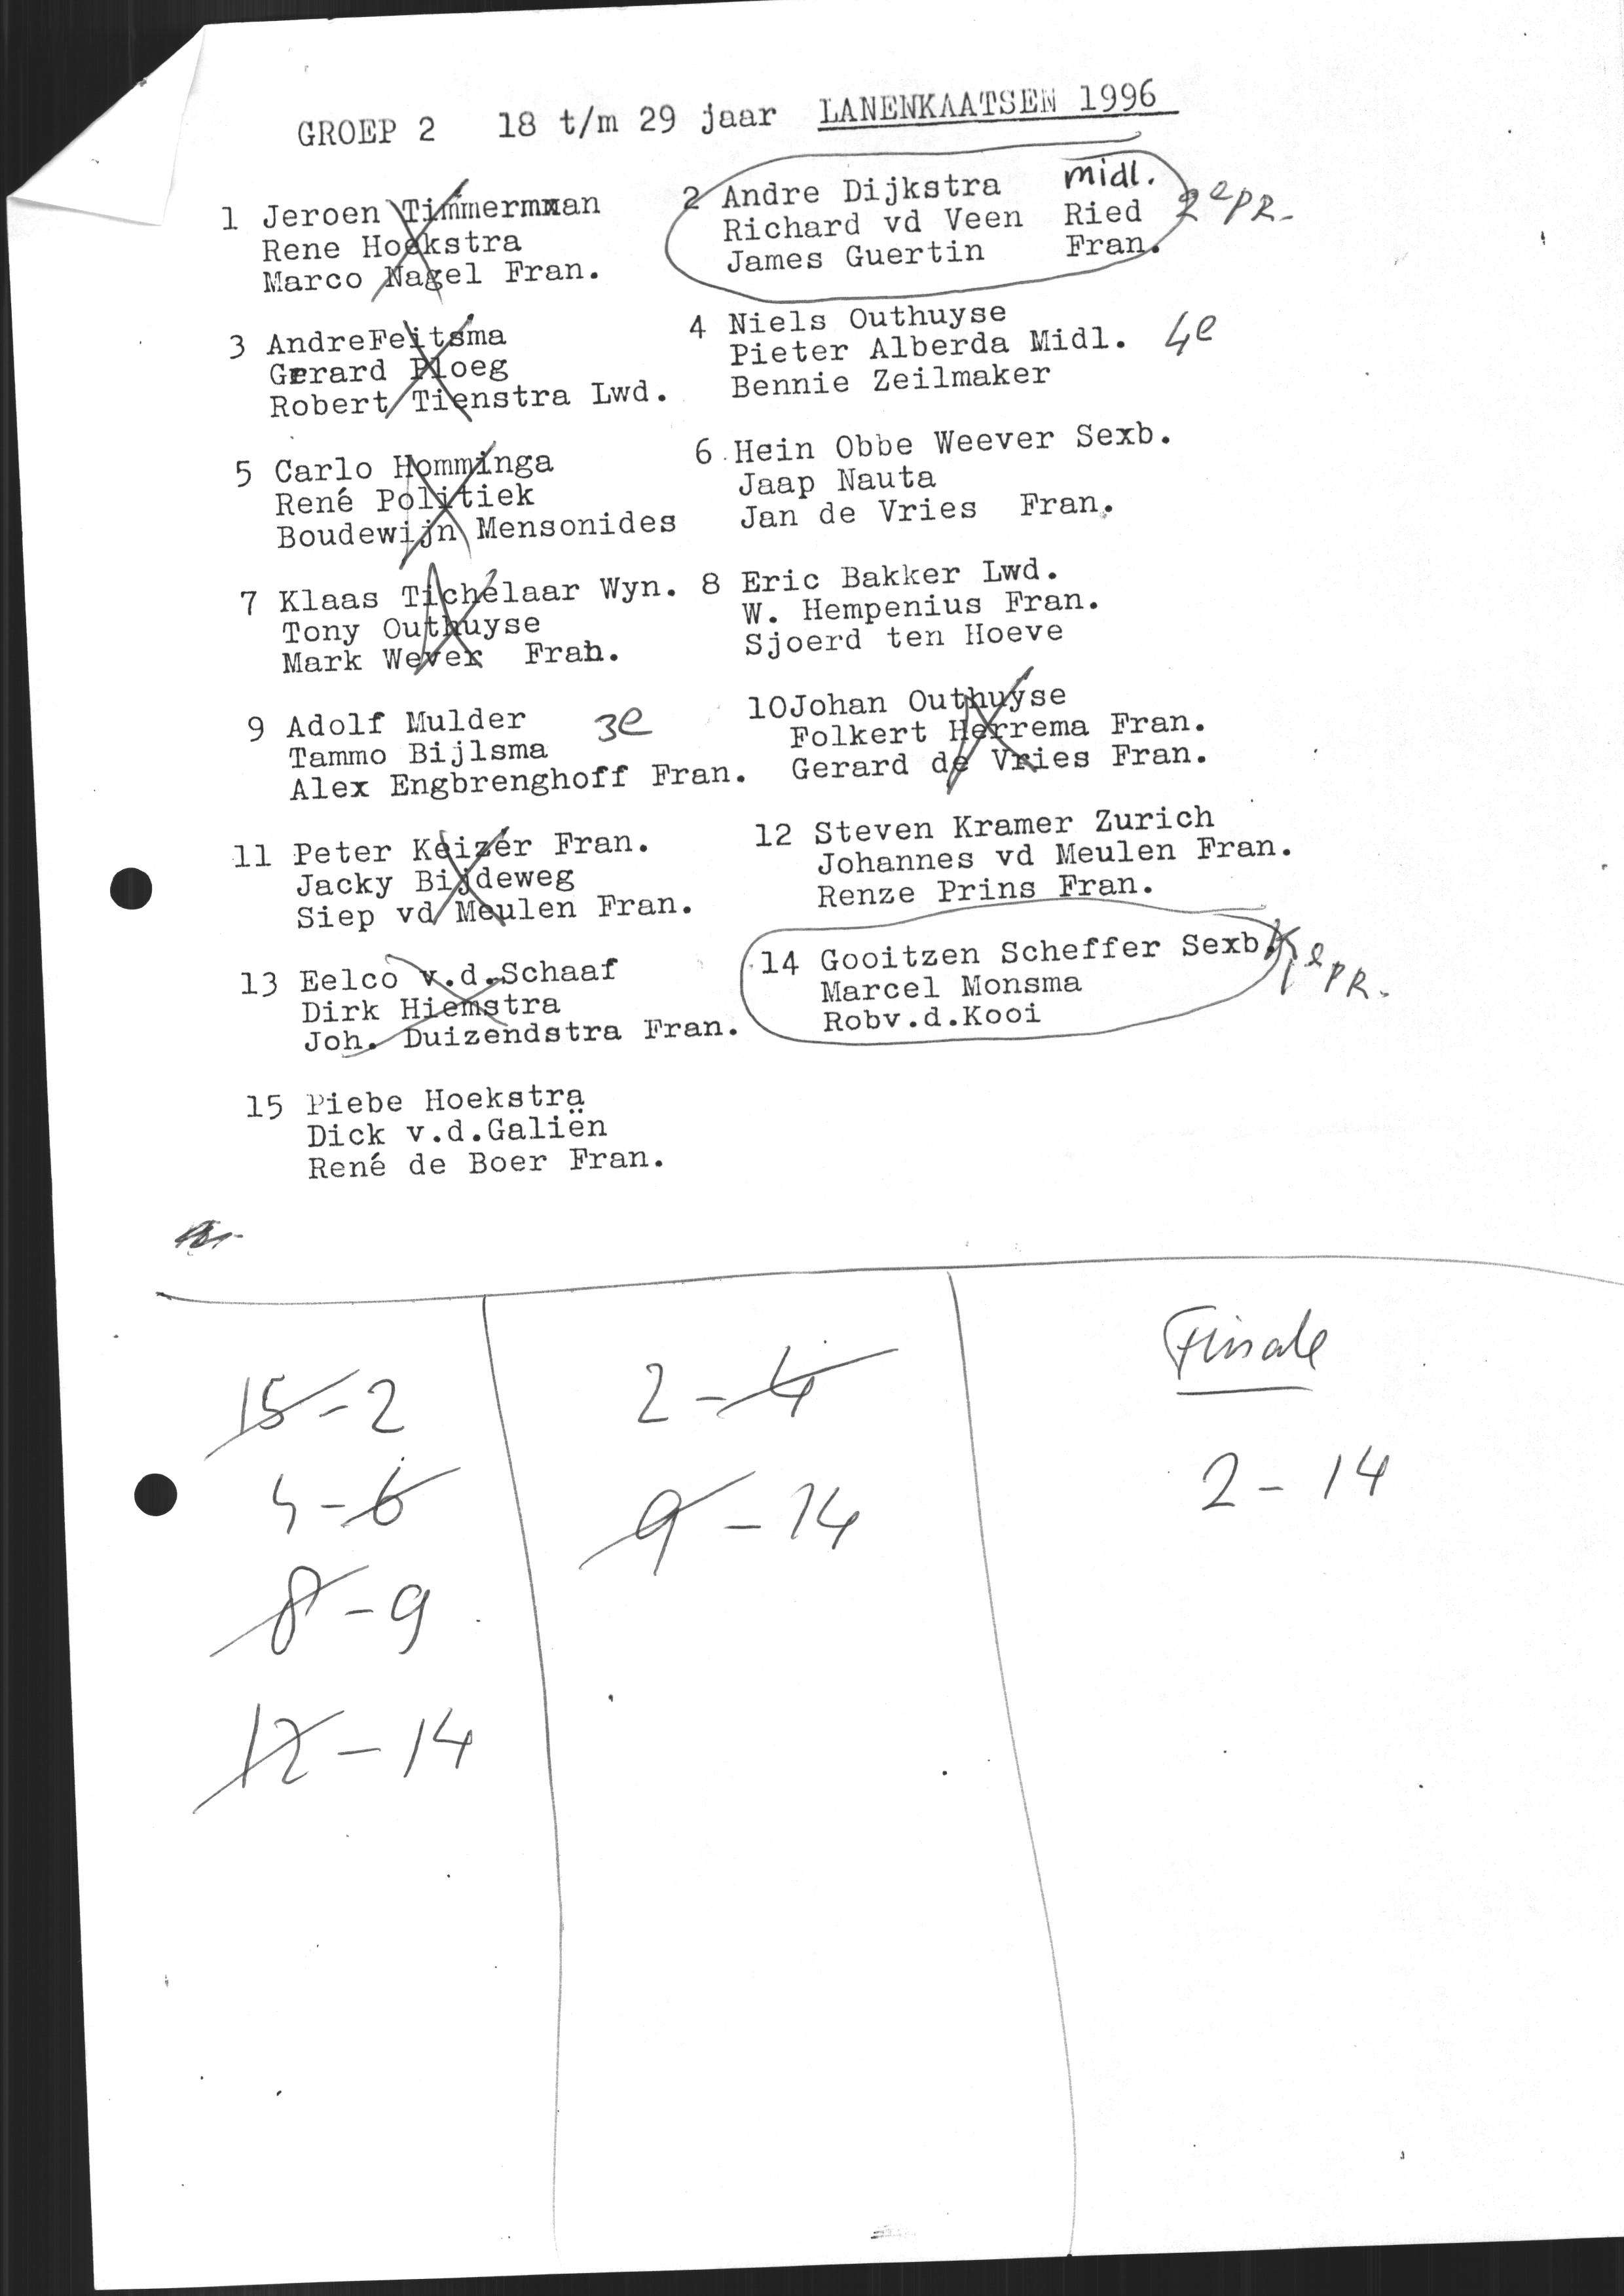 GROEP 2 18 t/m 29 jaar LANENKAATSEN 1996
1 Jeroen Timmermxan
Rene Hoekstra
Marco Nagel Fran.
2 Andre Dijkstra midl.
Richard vd Veen Ried 2e PR.
James Guertin Fran.
3 AndreFeitsma
Gerard Ploeg
Robert Tienstra Lwd.
4 Niels Outhuyse
Pieter Alberda Midl. 4e
Bennie Zeilmaker
5 Carlo Homminga
René Politiek
Boudewijn Mensonides
6 Hein Obbe Weever Sexb.
Jaap Nauta
Jan de Vries Fran.
7 Klaas Tichelaar Wyn.
Tony Outhuyse
Mark Wever Fran.
8 Eric Bakker Lwd.
W. Hempenius Fran.
Sjoerd ten Hoeve
9 Adolf Mulder 3e
Tammo Bijlsma
Alex Engbrenghoff Fran.
10Johan Outhuyse
Folkert Herrema Fran.
Gerard de Vries Fran.
11 Peter Keizer Fran.
Jacky Bijdeweg
Siep vd Meulen Fran.
12 Steven Kramer Zurich
Johannes vd Meulen Fran.
Renze Prins Fran.
13 Eelco v.d.Schaaf
Dirk Hiemstra
Joh. Duizendstra Fran.
14 Gooitzen Scheffer Sexb. 1e PR.
Marcel Monsma
Robv.d.Kooi
15 Piebe Hoekstra
Dick v.d.Galiën
René de Boer Fran.
15 - 2
4 - 6
8 - 9
12 - 14
2 - 4
9 - 14
Finale
2 - 14